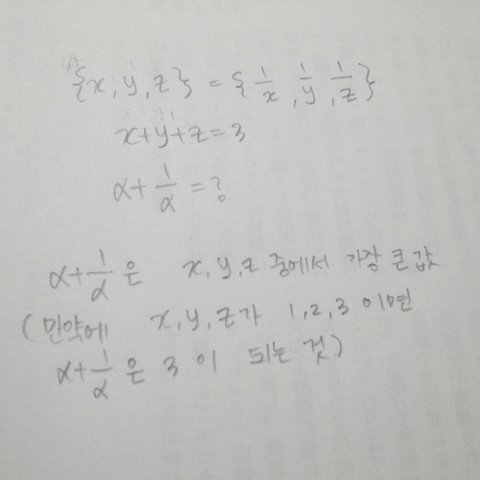 {x, y, z} = {1/x, 1/y, 1/z}
x+y+z=3
α+1/α=?
α+1/α 은 x, y, z 중에서 가장 큰 값
(만약에 x, y, z가 1, 2, 3 이면
α+1/α 은 3 이 되는 것)